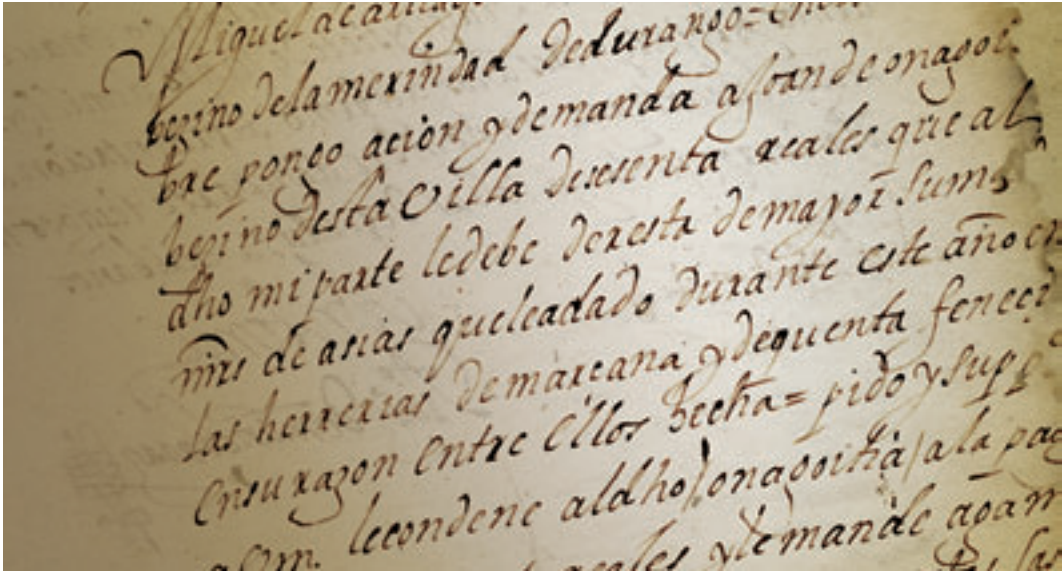 Miguel
beçino dela merindad de durango=
bre pongo acion y demanda a Joan de onagoi
beçino desta Villa de sesenta reales que al
dho mi parte le debe de resta de mayor Suma
de asias que le a dado durante este año en
las herrerias de mareana y de quenta feneçi
en su razon entre Ellos hecha= pido y supp
le condene al dho Jonagoitia a la pag
reales y le mande agam